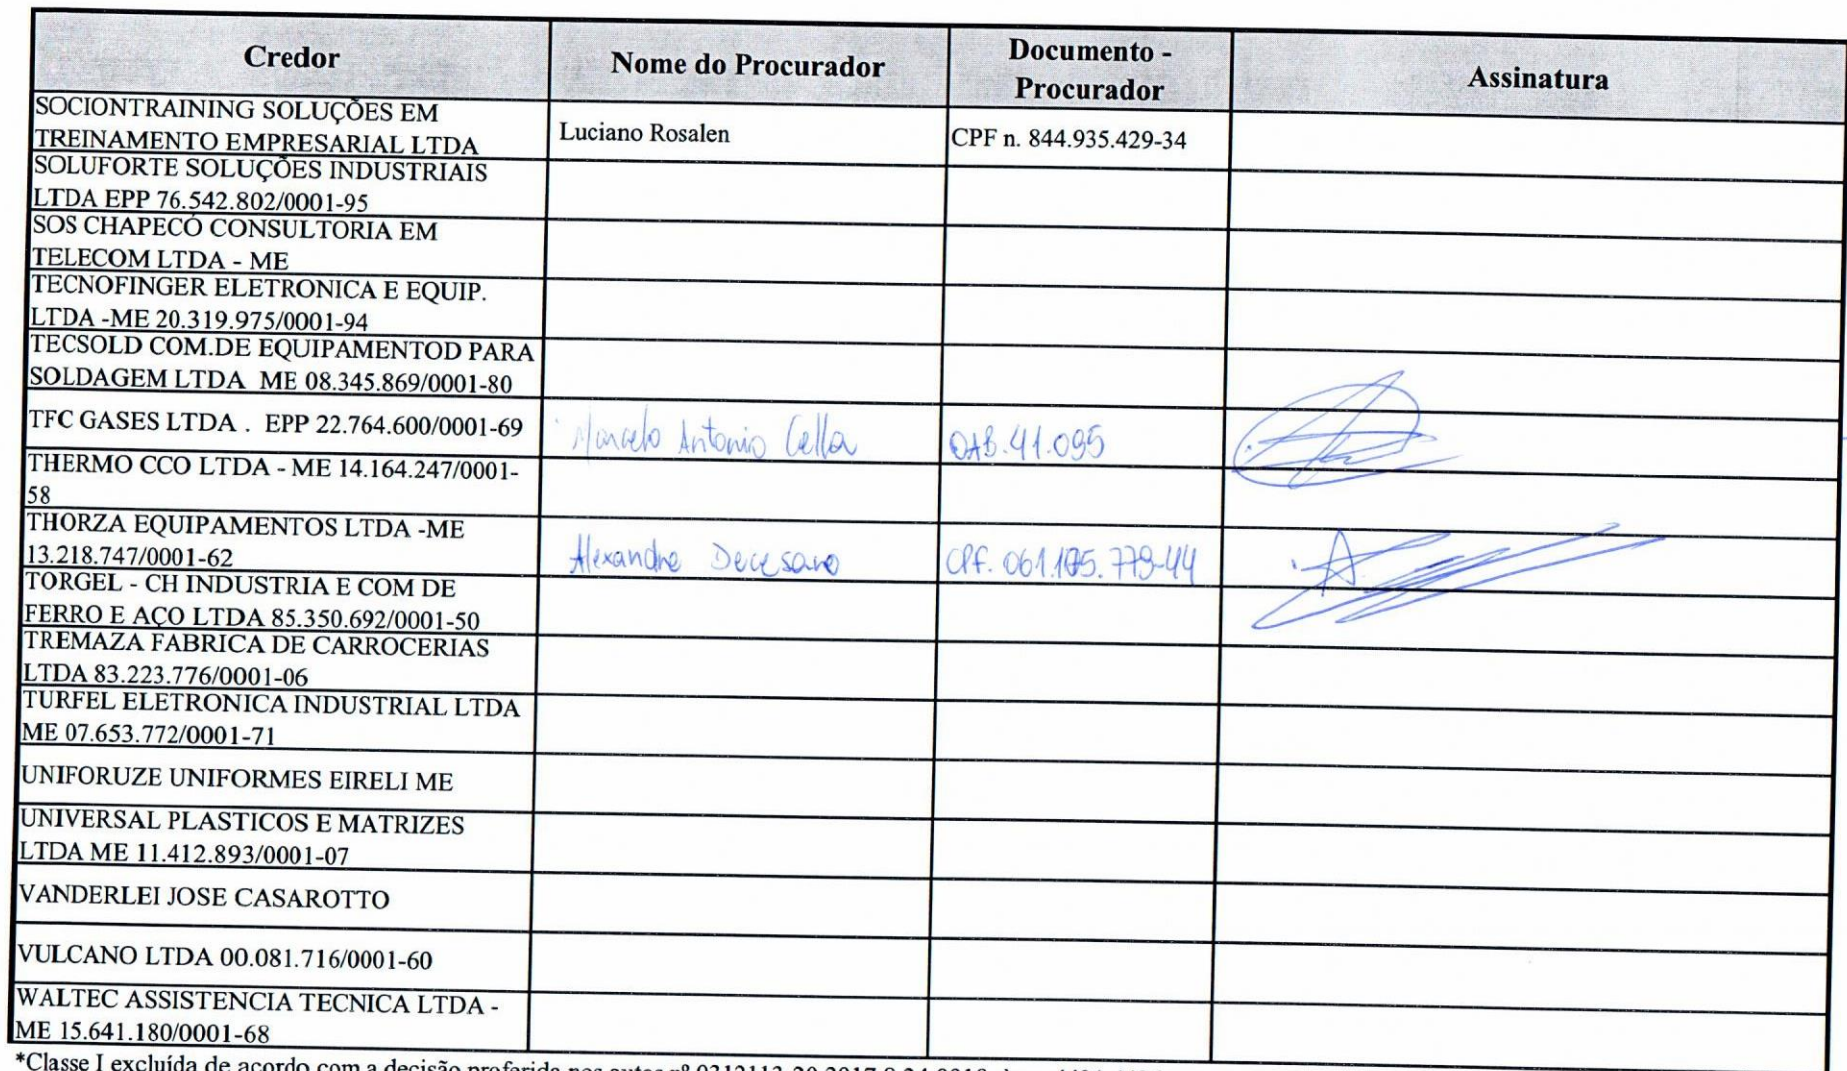 Credor
Nome do Procurador
Documento -
Procurador
Assinatura
SOCIONTRAINING SOLUÇÕES EM
TREINAMENTO EMPRESARIAL LTDA
Luciano Rosalen
CPF n. 844.935.429-34
SOLUFORTE SOLUÇÕES INDUSTRIAIS
LTDA EPP 76.542.802/0001-95
SOS CHAPECÓ CONSULTORIA EM
TELECOM LTDA - ME
TECNOFINGER ELETRONICA E EQUIP.
LTDA -ME 20.319.975/0001-94
TECSOLD COM.DE EQUIPAMENTOD PARA
SOLDAGEM LTDA ME 08.345.869/0001-80
TFC GASES LTDA . EPP 22.764.600/0001-69
Marcelo Antonio Cella
OAB.41.095
THERMO CCO LTDA - ME 14.164.247/0001-
58
THORZA EQUIPAMENTOS LTDA -ME
13.218.747/0001-62
Alexandre Decesaro
CPF.
TORGEL - CH INDUSTRIA E COM DE
FERRO E AÇO LTDA 85.350.692/0001-50
TREMAZA FABRICA DE CARROCERIAS
LTDA 83.223.776/0001-06
TURFEL ELETRONICA INDUSTRIAL LTDA
ME 07.653.772/0001-71
UNIFORUZE UNIFORMES EIRELI ME
UNIVERSAL PLASTICOS E MATRIZES
LTDA ME 11.412.893/0001-07
VANDERLEI JOSE CASAROTTO
VULCANO LTDA 00.081.716/0001-60
WALTEC ASSISTENCIA TECNICA LTDA -
ME 15.641.180/0001-68
*Classe I excluída de acordo com a decisão proferida nos autos nº